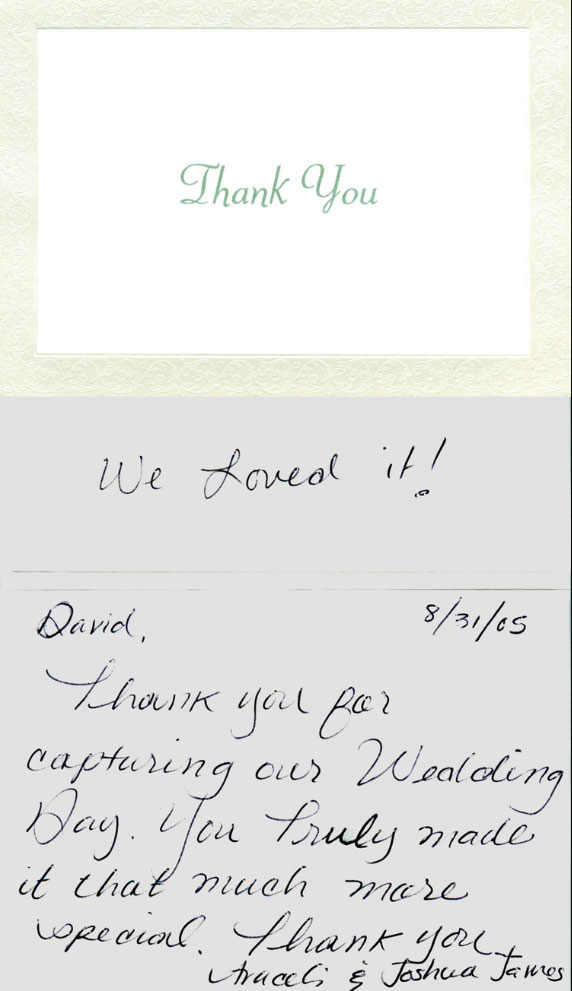 Thank You
We Loved it!
David,
8/31/05
Thank you for
capturing our Wedding
Day. You Truly made
it that much more
special. Thank you
Araceli & Joshua James